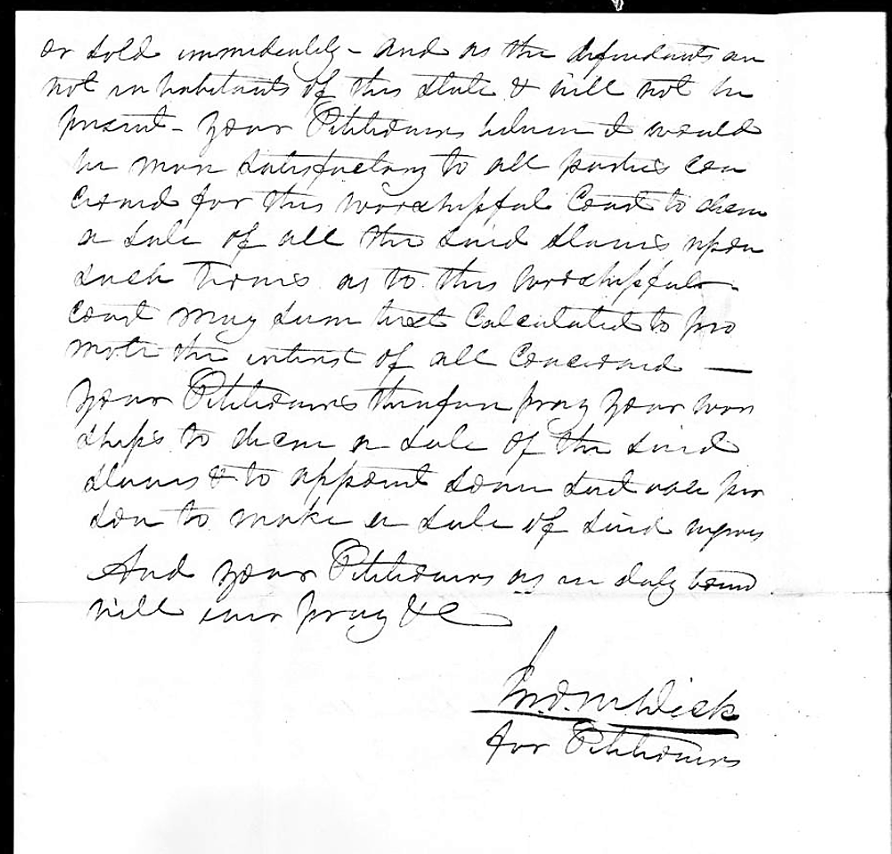 or sold immediately - and as the defendants are
not inhabitants of this State & will not be
present - your Petitioners believe it would
be more satisfactory to all parties con
cerned for this worshipful Court to decree
a sale of all the said slaves upon
such terms as to this worshipful
court may deem best calculated to pro
mote the interest of all concerned —
your Petitioners therefore pray your wor
ships to decree a sale of the said
slaves & to appoint some suitable per
son to make a sale of said negroes
And your Petitioners as in duty bound
will ever pray &c
Jno. M. Dick
for Petitioners